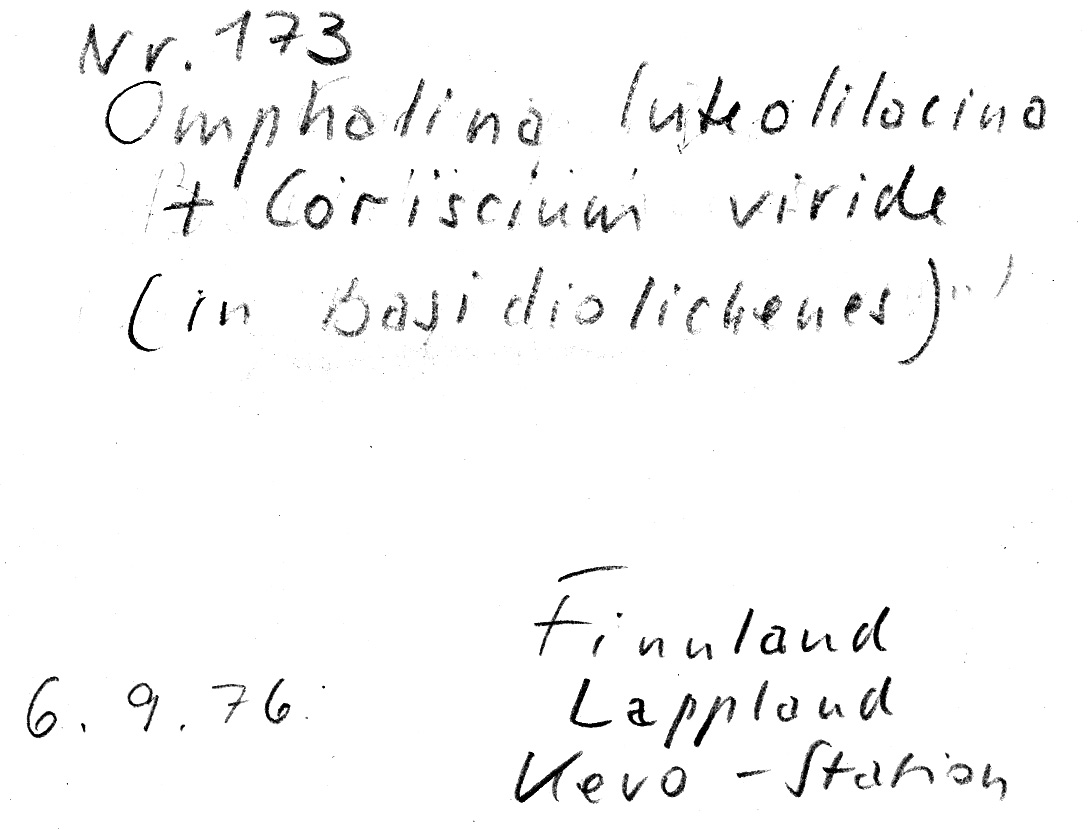 Nr. 173
Omphalina luteolilacina
+ Coriscium viride
(in Basidiolichenes)
Finnland
6. 9. 76.
Lappland
Kevo - Station